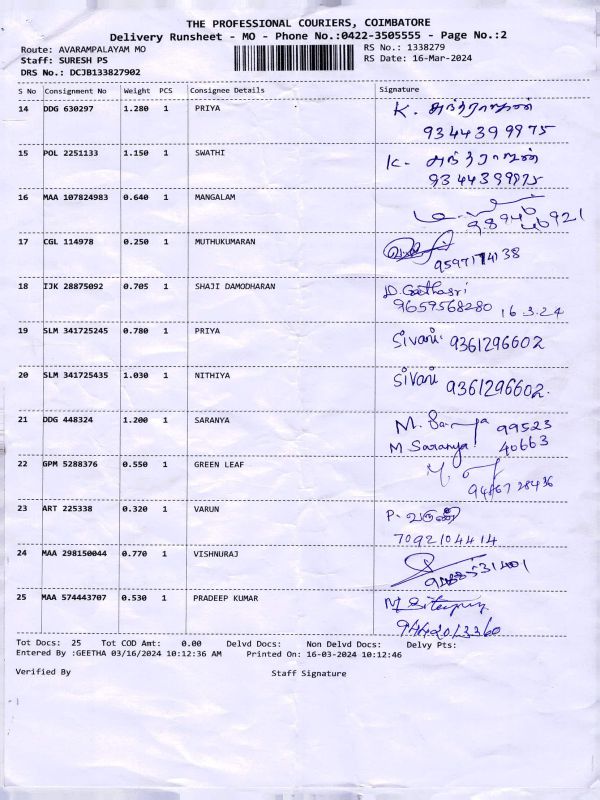 THE PROFESSIONAL COURIERS, COIMBATORE
Delivery Runsheet - MO - Phone No.:0422-3505555 - Page No.:2
Route: AVARAMPALAYAM MO
RS No.: 1338279
Staff: SURESH PS
RS Date: 16-Mar-2024
DRS No.: DCJB133827902
S No Consignment No Weight PCS Consignee Details Signature
14 DDG 630297 1.280 1 PRIYA K.
9344399975
15 POL 2251133 1.150 1 SWATHI K.
9344399975
16 MAA 107824983 0.640 1 MANGALAM
17 CGL 114978 0.250 1 MUTHUKUMARAN
18 IJK 28875092 0.705 1 SHAJI DAMODHARAN D. Geethasri
9659568280 16.3.24
19 SLM 341725245 0.780 1 PRIYA Sivani 9361296602
20 SLM 341725435 1.030 1 NITHIYA Sivani 9361296602.
21 DDG 448324 1.200 1 SARANYA M. 99523
M Saranya 40663
22 GPM 5288376 0.550 1 GREEN LEAF
23 ART 225338 0.320 1 VARUN P. வருண்
7092104414
24 MAA 298150044 0.770 1 VISHNURAJ
25 MAA 574443707 0.530 1 PRADEEP KUMAR
9442013360
Tot Docs: 25 Tot COD Amt: 0.00 Delvd Docs: Non Delvd Docs: Delvy Pts:
Entered By :GEETHA 03/16/2024 10:12:36 AM Printed On: 16-03-2024 10:12:46
Verified By Staff Signature